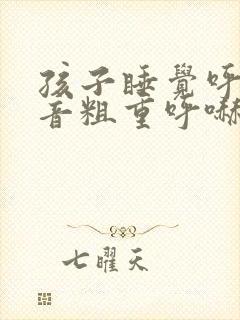 孩子睡覺呼
音粗重呼嚇
七曜天